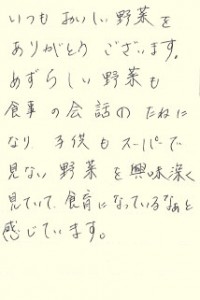 いつも おいしい 野菜を
ありがとう ございます。
めずらしい 野菜も
食事の会話の たねに
なり 子供も スーパーで
見ない 野菜を 興味深く
見ていて、食育になっているなぁと
感じています。